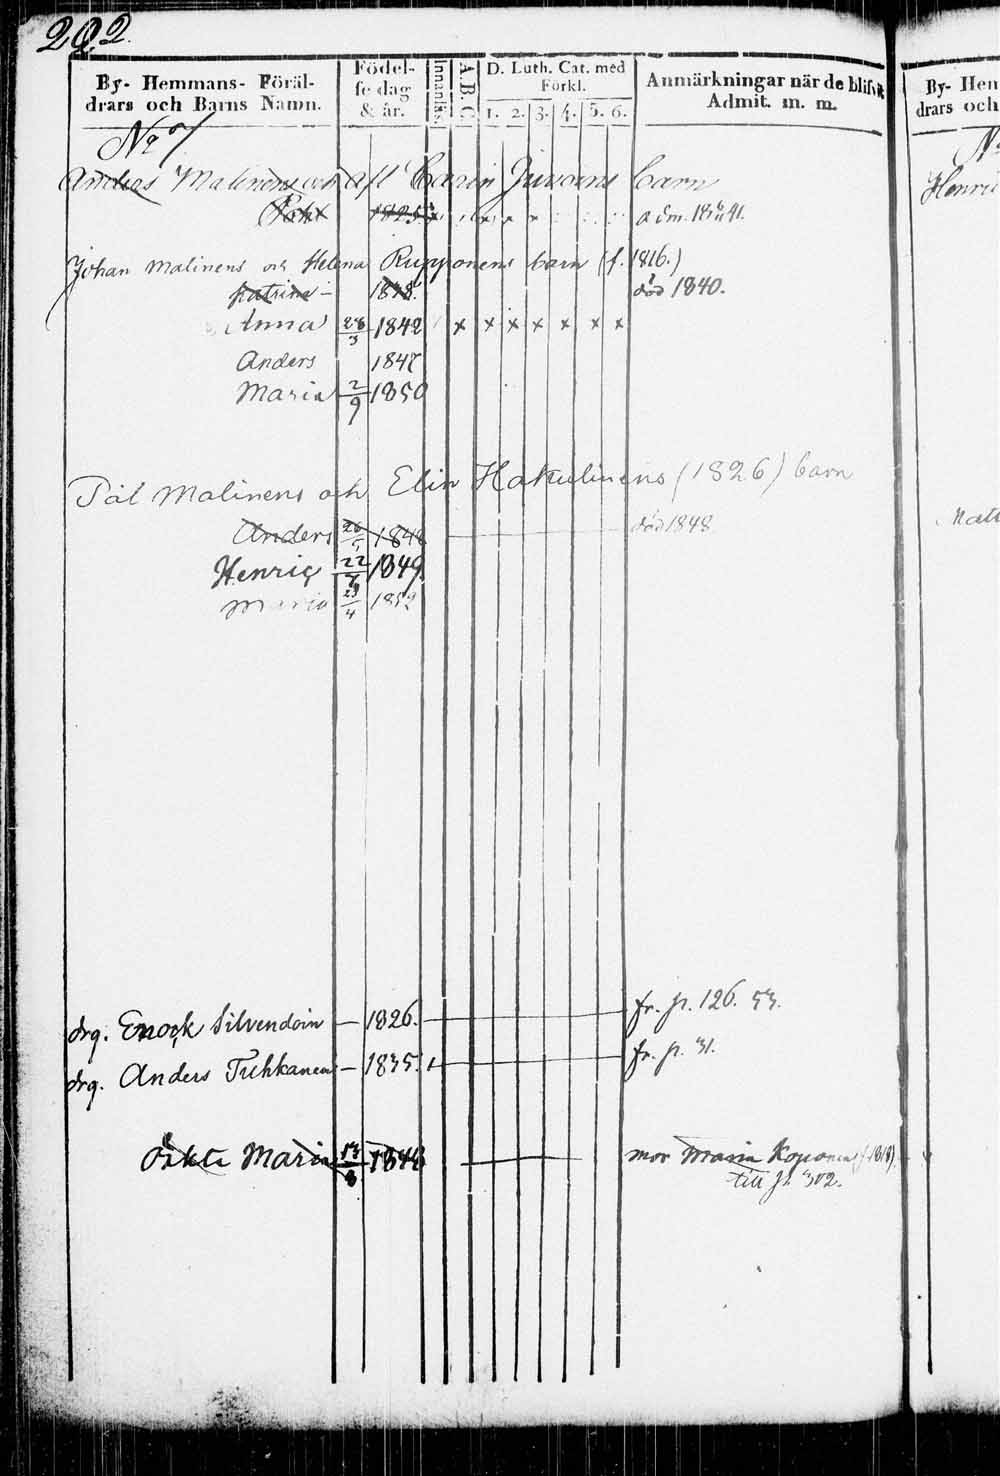 202.
By- Hemmans- Föräl-
drars och Barns Namn.
Födel-
se dag
& år.
Innanläs.
A. B. C.
D. Luth. Cat. med
Förkl.
1. 2. 3. 4. 5. 6.
Anmärkningar när de blifvit
Admit. m. m.
No 7
Anders Malinens och afl Carin Juvoins barn
1825
adm. 18 41.
Johan Malinens och Helena Rupponens barn (f. 1816.)
Katrina 1838. död 1840.
Anna 28/3 1842 x x x x x x x
Anders 1847
Maria 2/9 1850
Pål Malinens och Elin Hakulinens (1826) barn
Anders 26/5 1848 död 1848
Henric 22/7 1849
Maria 23/4 1852
drg. Enock Silvendoin — 1826. fr. p. 126. 53.
drg. Anders Tuhkanen — 1835. fr. p. 31.
Oäkta Maria 13/8 1848 mor Maria Koponen (1818).
till p. 302.
By- Hem
drars och
No
Henric
Matt